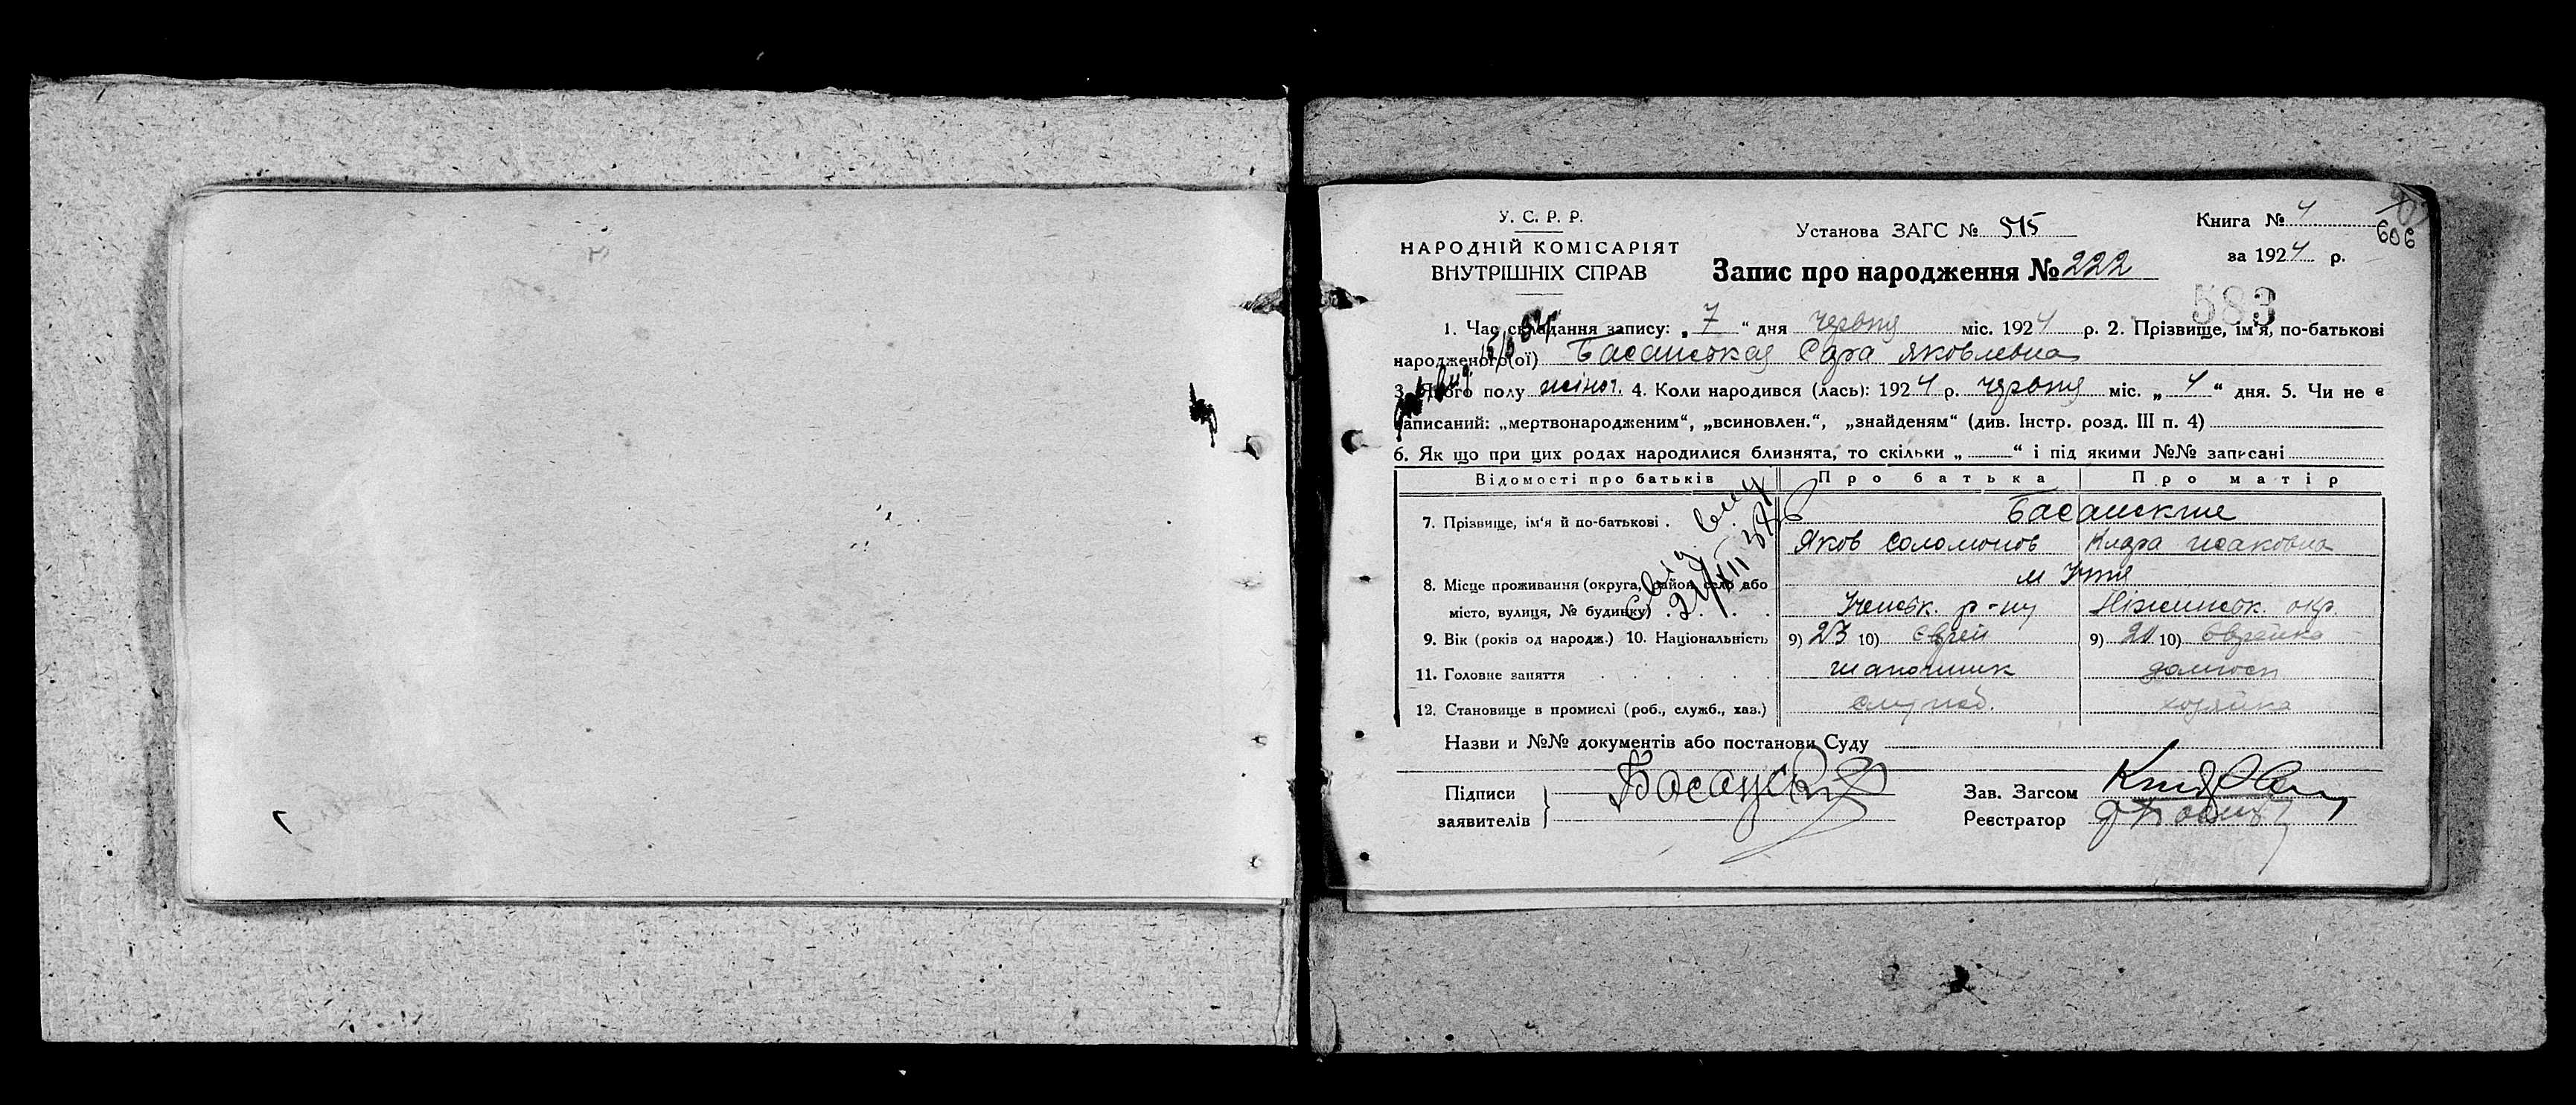 У. С. Р. Р.
НАРОДНІЙ КОМІСАРІЯТ
ВНУТРІШНІХ СПРАВ
Установа ЗАГС № 515
Запис про народження № 222
Книга № 4
606
за 1924 р.
583
1. Час складання запису: „ 7 “ дня червня міс. 1924 р. 2. Прізвище, ім'я, по-батькові
народженого(ої) Басанская Сара Яковлевна
3. Якого полу жіноч. 4. Коли народився (лась): 1924 р. червня міс. „ 4 “ дня. 5. Чи не є
записаний: „мертвонародженим“, „всиновлен.“, „знайденям“ (див. Інстр. розд. III п. 4)
6. Як що при цих родах народилися близнята, то скільки „ “ і під якими №№ записані
Відомості про батьків Про батька Про матір
7. Прізвище, ім'я й по-батькові . Басанские
Яков Соломонов Клара Исаковна
8. Місце проживання (округа, район, село або м
місто, вулиця, № будинку) р-ну Ніжинськ. окр.
9. Вік (років од народж.) 10. Національність 9) 23 10) єврей 9) 20 10) єврейка
11. Головне заняття шапошник домгосп
12. Становище в промислі (роб., служб., хаз.) хозяйка
Назви и №№ документів або постанови Суду
Підписи
заявителів
Зав. Загсом
Реєстратор